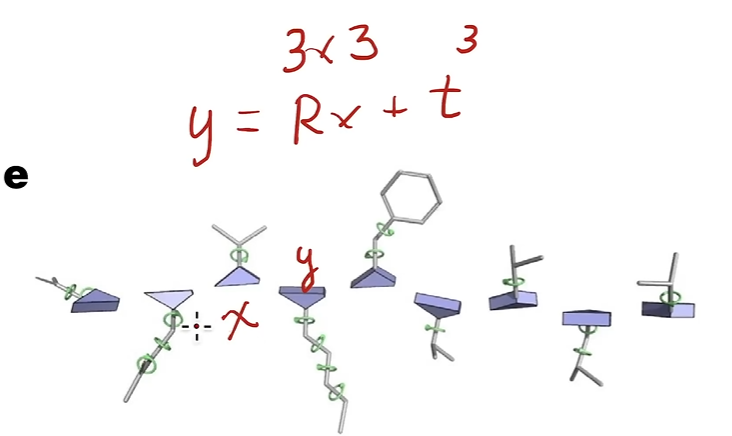 3x3 3
y = Rx + t
e
y
x